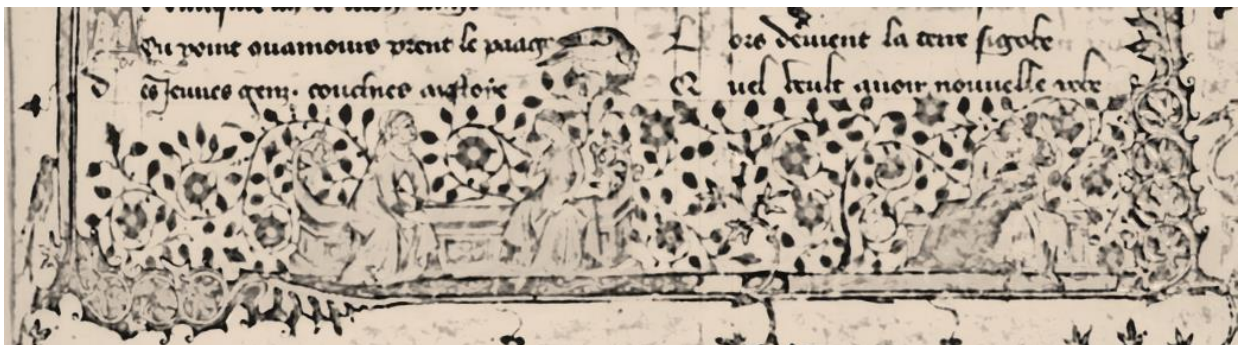 point quamours prent le paage
des Jeunes genz. couchies
Lors devient la terre si gobe
Quel veult avoir nouvelle robe